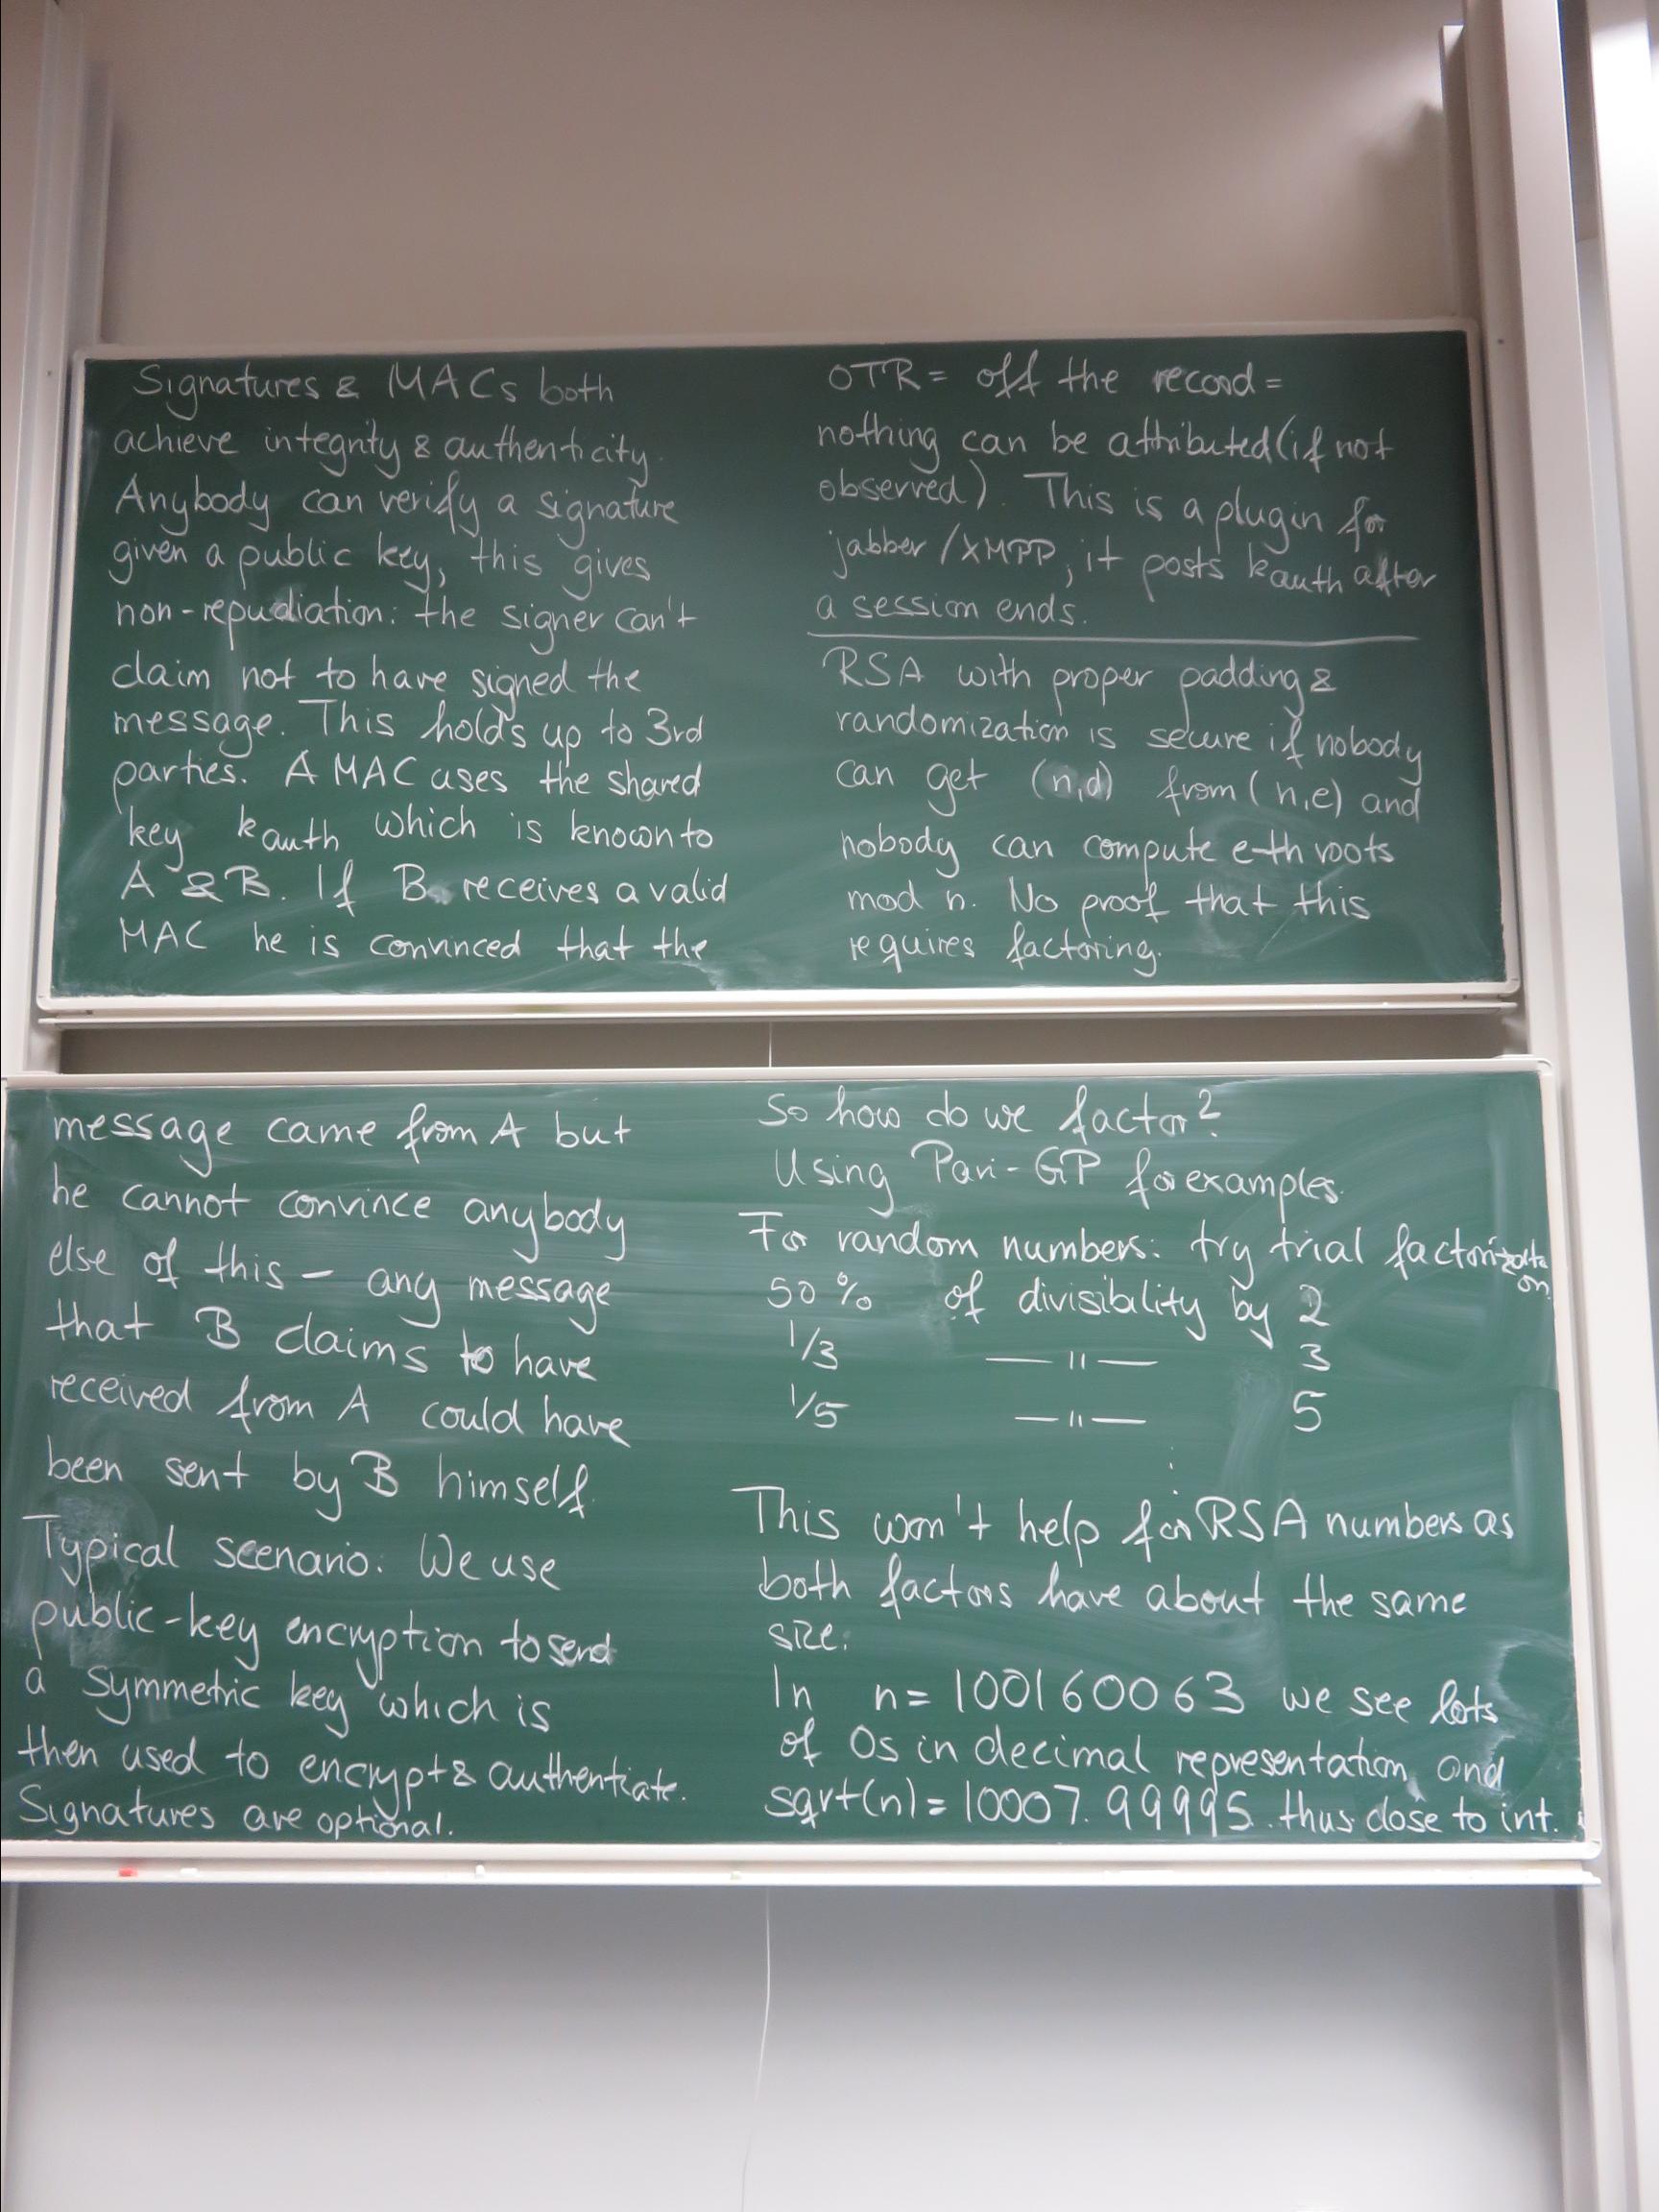 Signatures & MACs both
achieve integrity & authenticity.
Anybody can verify a signature
given a public key, this gives
non-repudiation: the signer can't
claim not to have signed the
message. This holds up to 3rd
parties. A MAC uses the shared
key kauth which is known to
A & B. If B receives a valid
MAC he is convinced that the
message came from A but
he cannot convince anybody
else of this – any message
that B claims to have
received from A could have
been sent by B himself.
Typical scenario: We use
public-key encryption to send
a symmetric key which is
then used to encrypt & authentiate.
Signatures are optional.
OTR = off the record =
nothing can be attributed (if not
observed). This is a plugin for
jabber / XMPP, it posts kauth after
a session ends.
RSA with proper padding &
randomization is secure if nobody
can get (n,d) from (n,e) and
nobody can compute e-th roots
mod n. No proof that this
requires factoring.
So how do we factor?
Using Pari-GP for examples.
For random numbers: try trial factorization
50% of divisibility by 2
1/3 — " — 3
1/5 — " — 5
⋮
This won't help for RSA numbers as
both factors have about the same
size.
In n = 100160063 we see lots
of 0s in decimal representation and
sqrt(n) = 10007.99995. thus close to int.